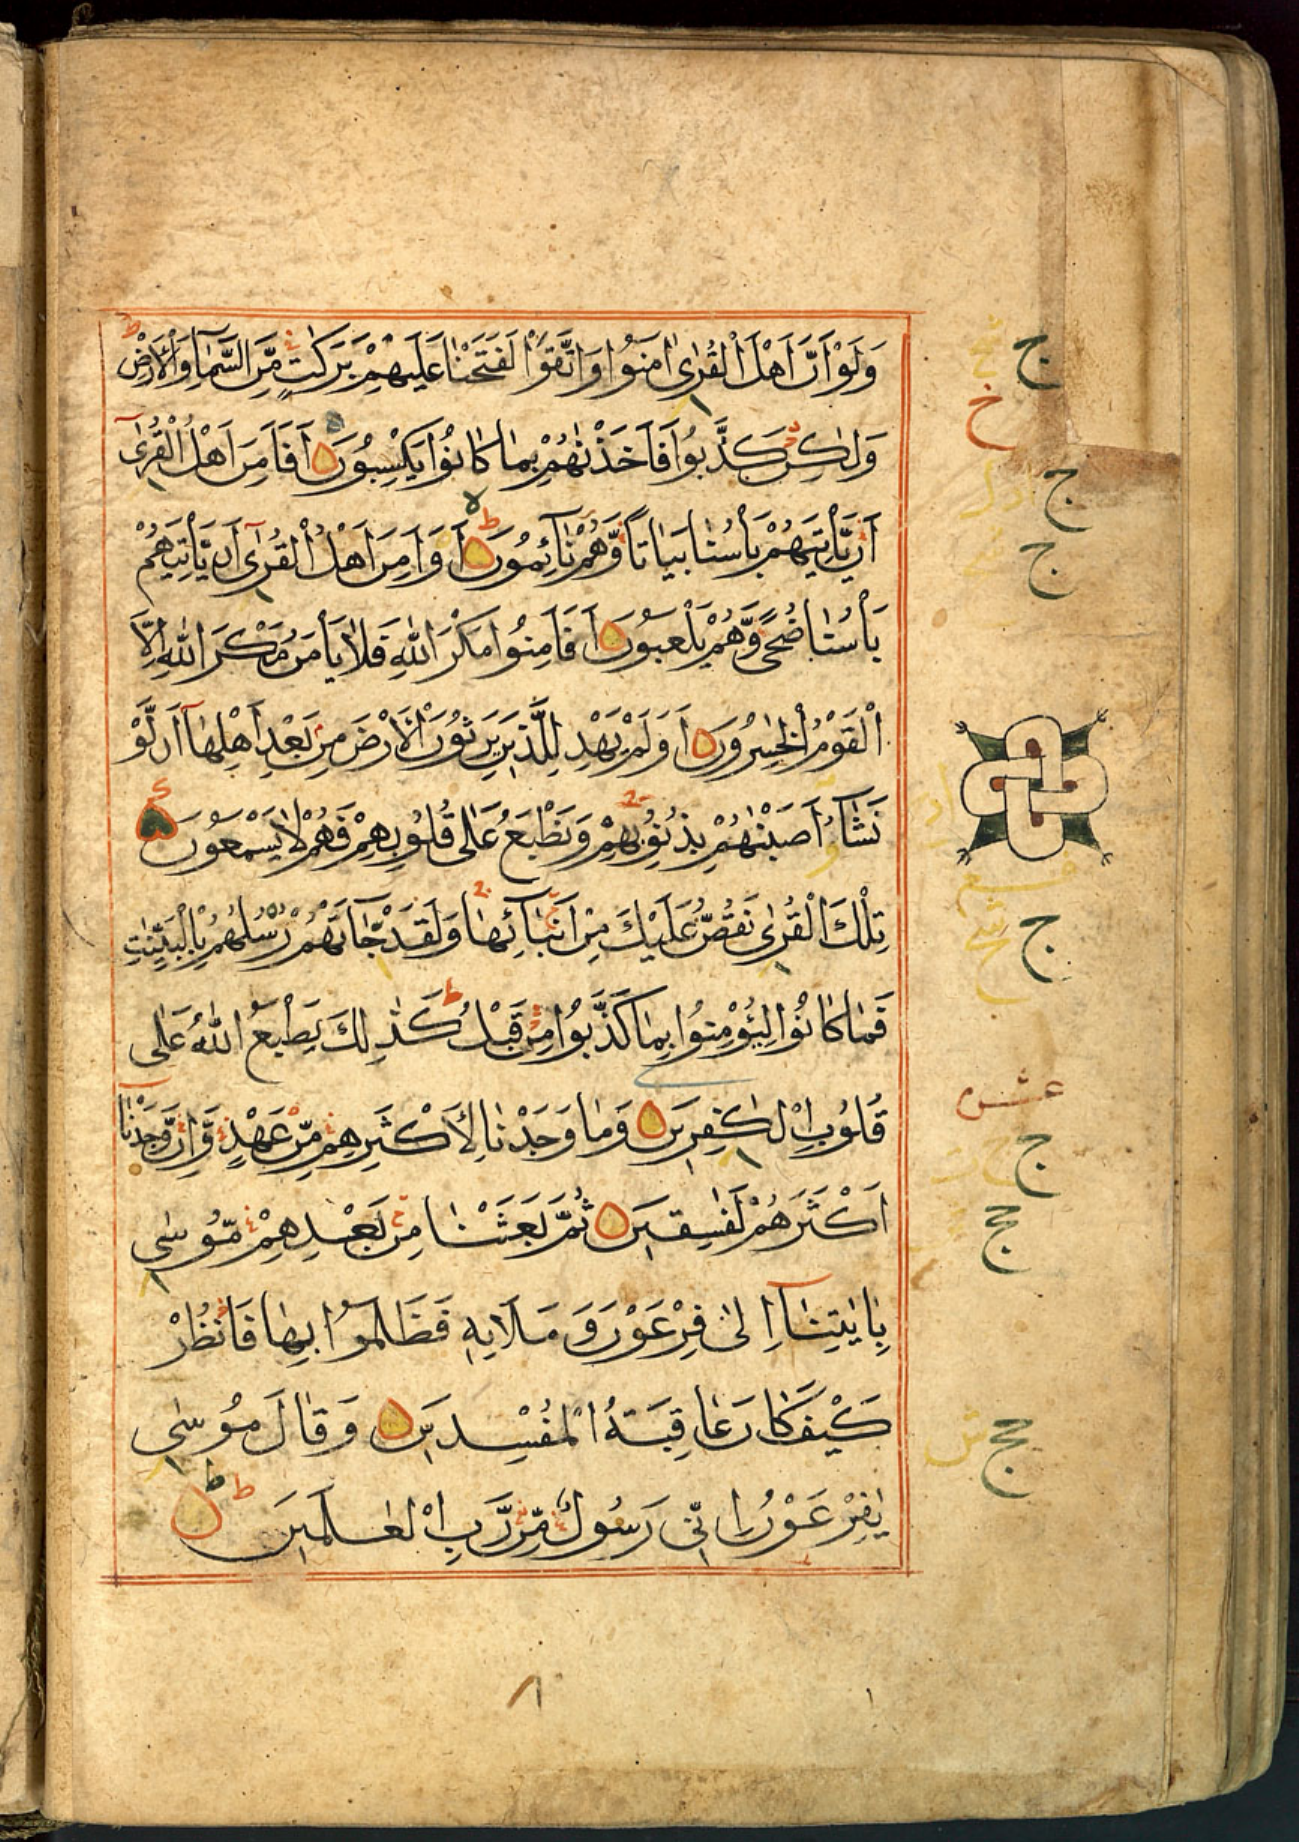 وَلَوْ اَنَّ اَهْلَ الْقُرٰى اٰمَنُوا وَاتَّقَوْا لَفَتَحْنَا عَلَيْهِمْ بَرَكٰتٍ مِّنَ السَّمَآءِ وَالْاَرْضِ ط
وَلٰكِنْ كَذَّبُوا فَاَخَذْنٰهُمْ بِمَا كَانُوْا يَكْسِبُوْنَ اَفَاَمِنَ اَهْلُ الْقُرٰى
اَنْ يَّاْتِيَهُمْ بَاْسُنَا بَيَاتًا وَّهُمْ نَآئِمُوْنَ ط اَوَاَمِنَ اَهْلُ الْقُرٰى اَنْ يَّاْتِيَهُمْ
بَاْسُنَا ضُحًى وَّهُمْ يَلْعَبُوْنَ اَفَاَمِنُوْا مَكْرَ اللهِ فَلَا يَاْمَنُ مَكْرَ اللهِ اِلَّا
الْقَوْمُ الْخٰسِرُوْنَ اَوَلَمْ يَهْدِ لِلَّذِيْنَ يَرِثُوْنَ الْاَرْضَ مِنْ بَعْدِ اَهْلِهَا اَنْ لَّوْ
نَشَآءُ اَصَبْنٰهُمْ بِذُنُوْبِهِمْ وَنَطْبَعُ عَلٰى قُلُوْبِهِمْ فَهُمْ لَا يَسْمَعُوْنَ
تِلْكَ الْقُرٰى نَقُصُّ عَلَيْكَ مِنْ اَنْبَآئِهَا وَلَقَدْ جَآءَتْهُمْ رُسُلُهُمْ بِالْبَيِّنٰتِ
فَمَا كَانُوْا لِيُؤْمِنُوْا بِمَا كَذَّبُوْا مِنْ قَبْلُ ط كَذٰلِكَ يَطْبَعُ اللهُ عَلٰى
قُلُوْبِ الْكٰفِرِيْنَ وَمَا وَجَدْنَا لِاَكْثَرِهِمْ مِّنْ عَهْدٍ وَّاِنْ وَّجَدْنَا
اَكْثَرَهُمْ لَفٰسِقِيْنَ ثُمَّ بَعَثْنَا مِنْ بَعْدِهِمْ مُّوْسٰى
بِاٰيٰتِنَآ اِلٰى فِرْعَوْنَ وَمَلَا۟ئِهٖ فَظَلَمُوْا بِهَا فَانْظُرْ
كَيْفَ كَانَ عَاقِبَةُ الْمُفْسِدِيْنَ وَقَالَ مُوْسٰى
يٰفِرْعَوْنُ اِنِّيْ رَسُوْلٌ مِّنْ رَّبِّ الْعٰلَمِيْنَ ط
ج
خ
ج
ج
ج
عشر
ج